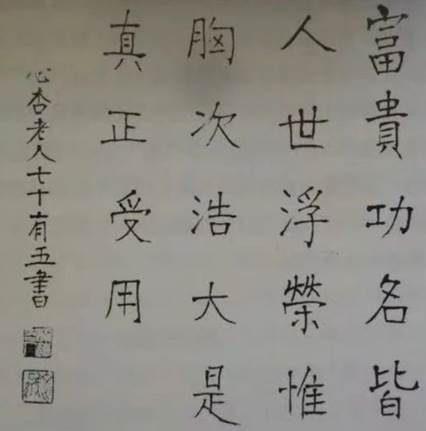 富貴功名皆
人世浮榮惟
胸次浩大是
真正受用
心杏老人七十有五書